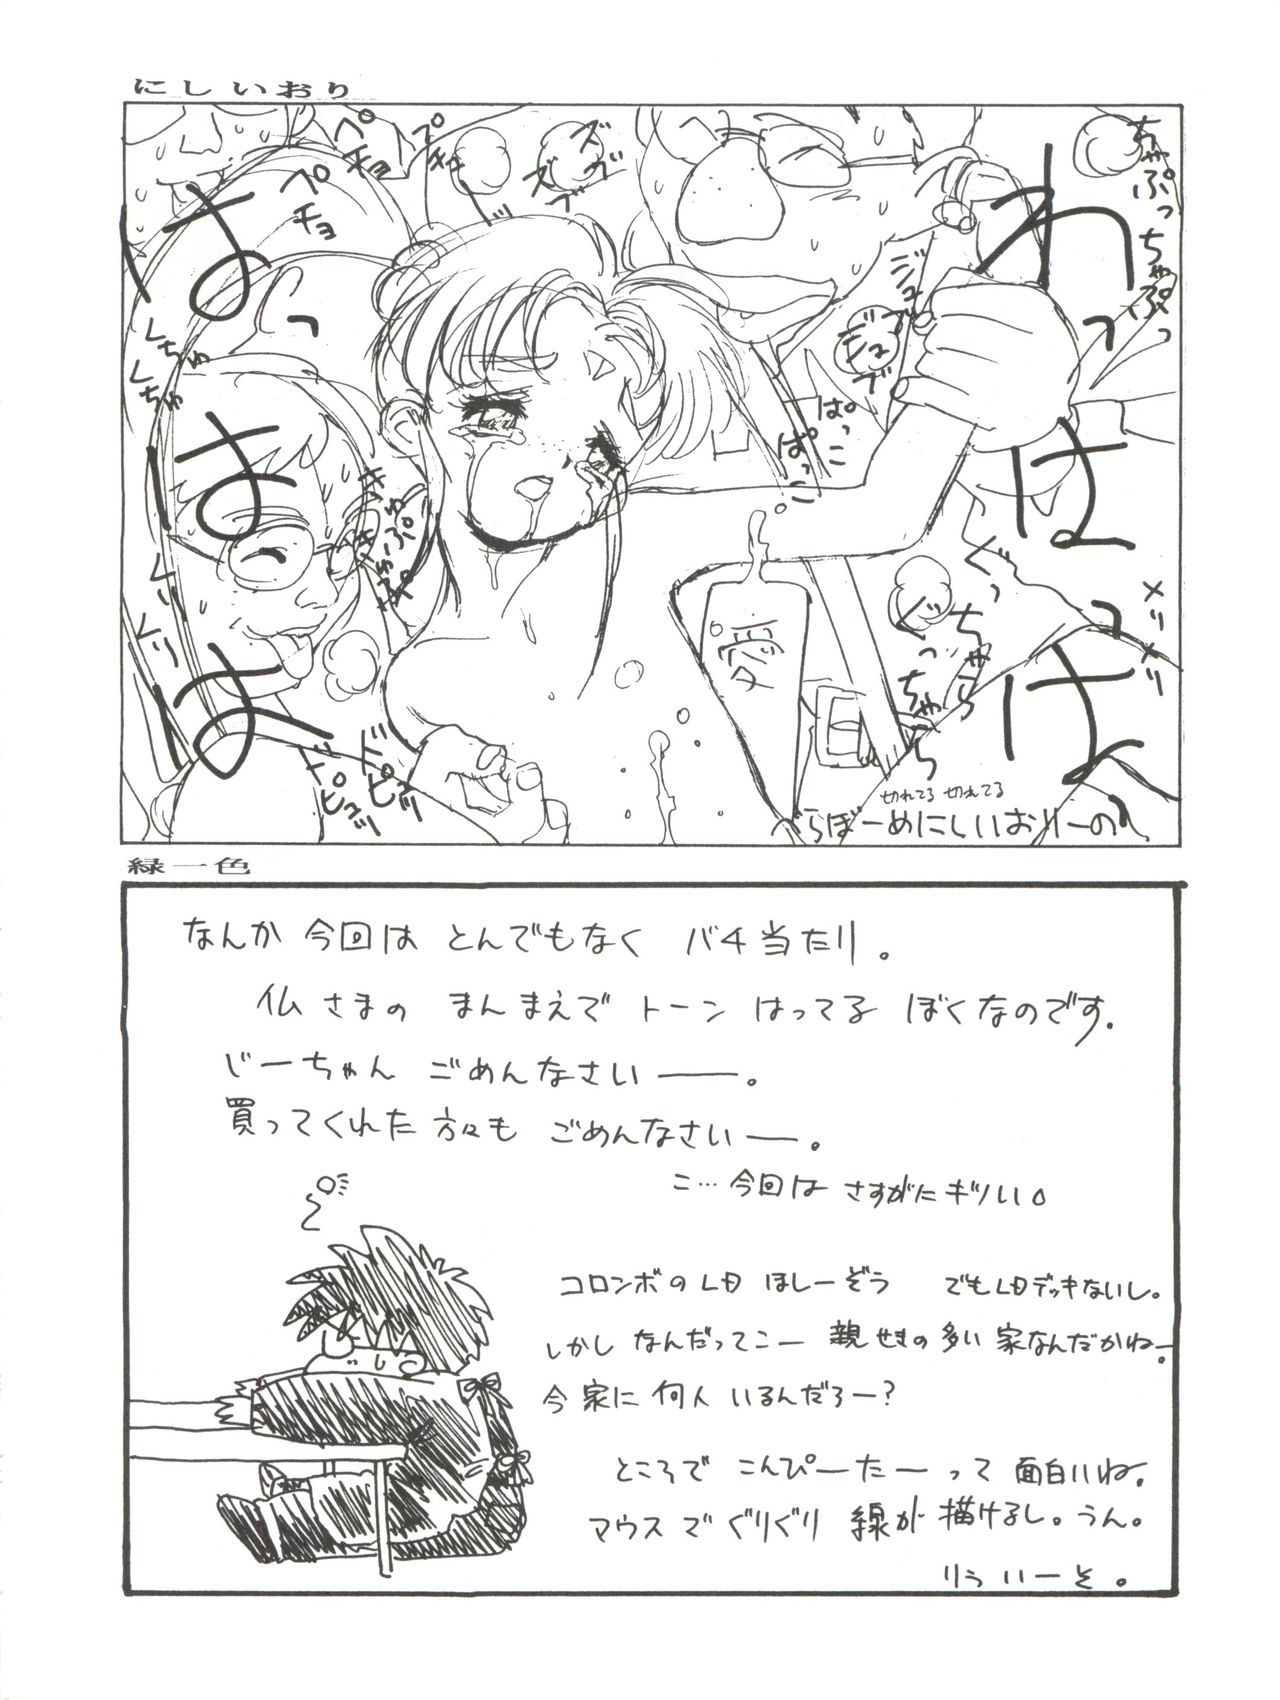 にしいおり
わっはっはっ
はっはは
ちゃぷっちゃぷっ
ズブ
ズブ
ペチョ
ペチョ
ジュブ
ジュブ
ぱっこ
ぱっこ
くちゅ
くちゅ
くりくり
ドピュッ
ドピュッ
ぐっちゃら
ぐっちゃら
メリメリ
愛
切れてる 切れてる
らぼーめにしいおりーの
緑一色
なんか 今回は とんでもなく バチ当たり。
仏さまの まんまえで トーン はってる ぼくなのです.
じーちゃん ごめんなさいー。
買ってくれた 方々も ごめんなさいー。
こ…今回は さすがに キツい。
コロンボのLD ほしーぞう でもLDデッキないし。
しかし なんだってこー 親せきの多い 家なんだかねー。
今 家に 何人 いるんだろー?
ところで こんぴーたーって 面白いね.
マウスで ぐりぐり 線が 描けるし。うん。
りういーそ。